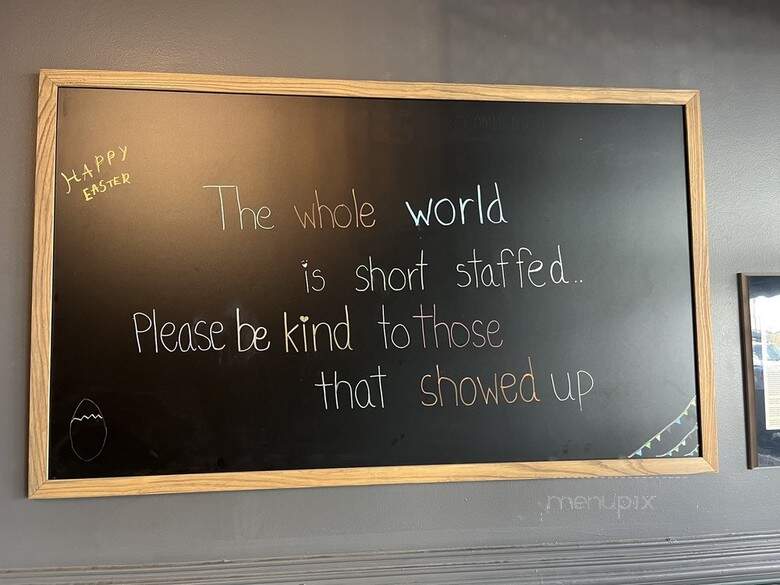 HAPPY
EASTER
The whole world
is short staffed..
Please be kind to those
that showed up
menupix